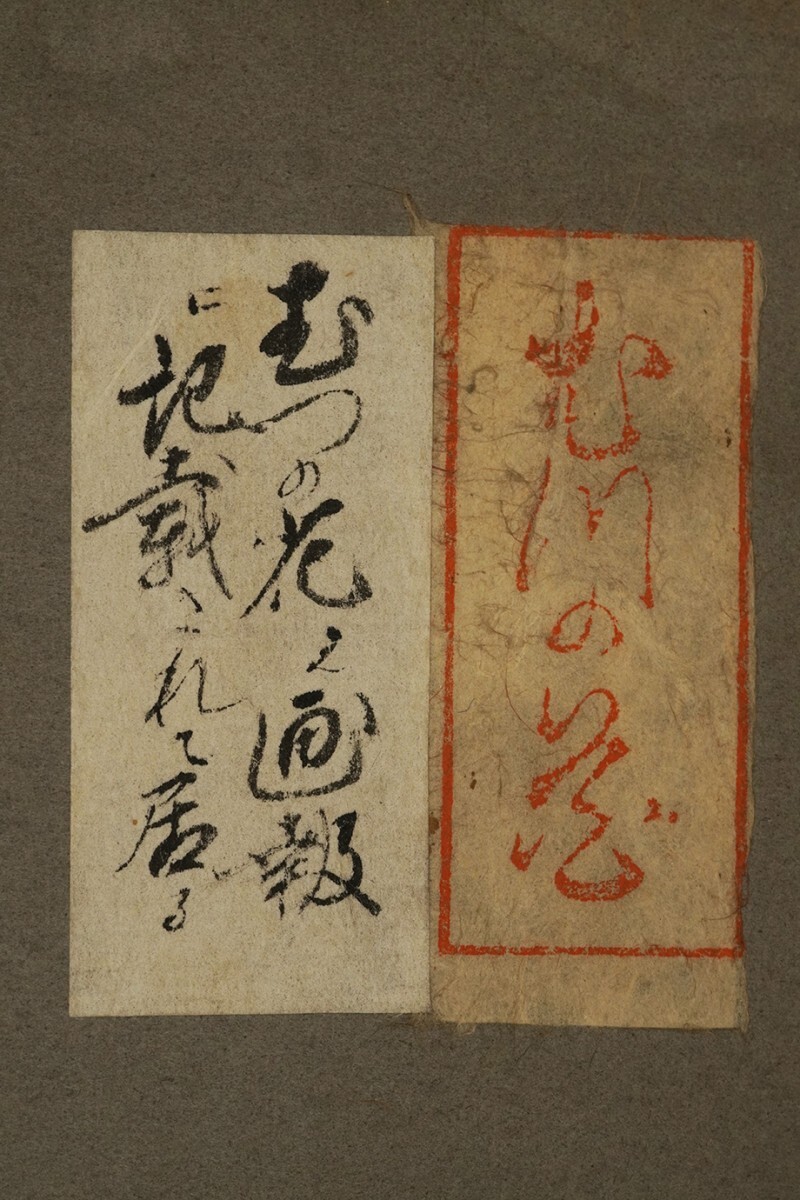 むつの花
むつの花之画報
に記載されて居る